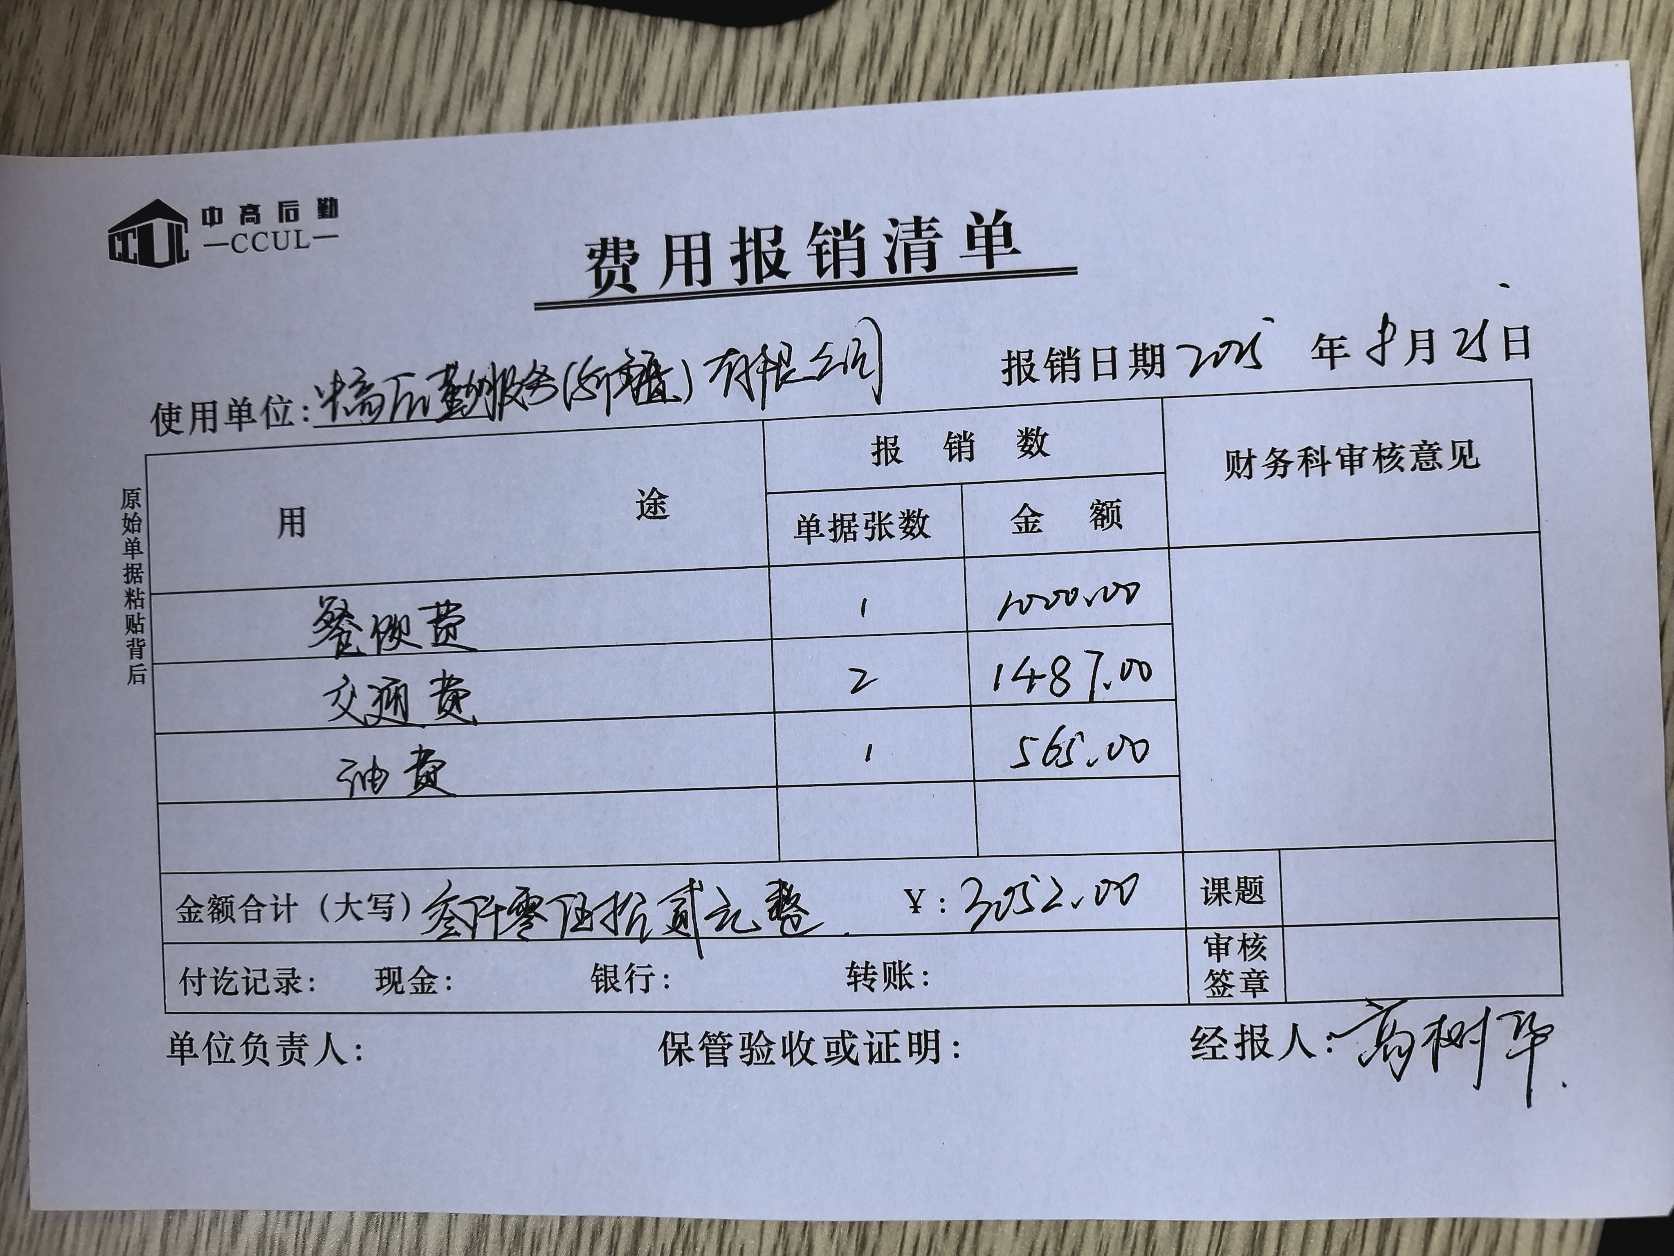 中高后勤
CCUL
费用报销清单
使用单位:中高后勤服务(新疆)有限公司 报销日期 2025 年 8 月 25 日
用 途 报 销 数 财务科审核意见
单据张数 金 额
原始单据粘贴背后
餐饮费 1 1000.00
交通费 2 1487.00
油费 1 565.00
金额合计(大写) 叁仟零伍拾贰元整. ¥: 3052.00 课题
付讫记录: 现金: 银行: 转账: 审核签章
单位负责人: 保管验收或证明: 经报人: 高树华.